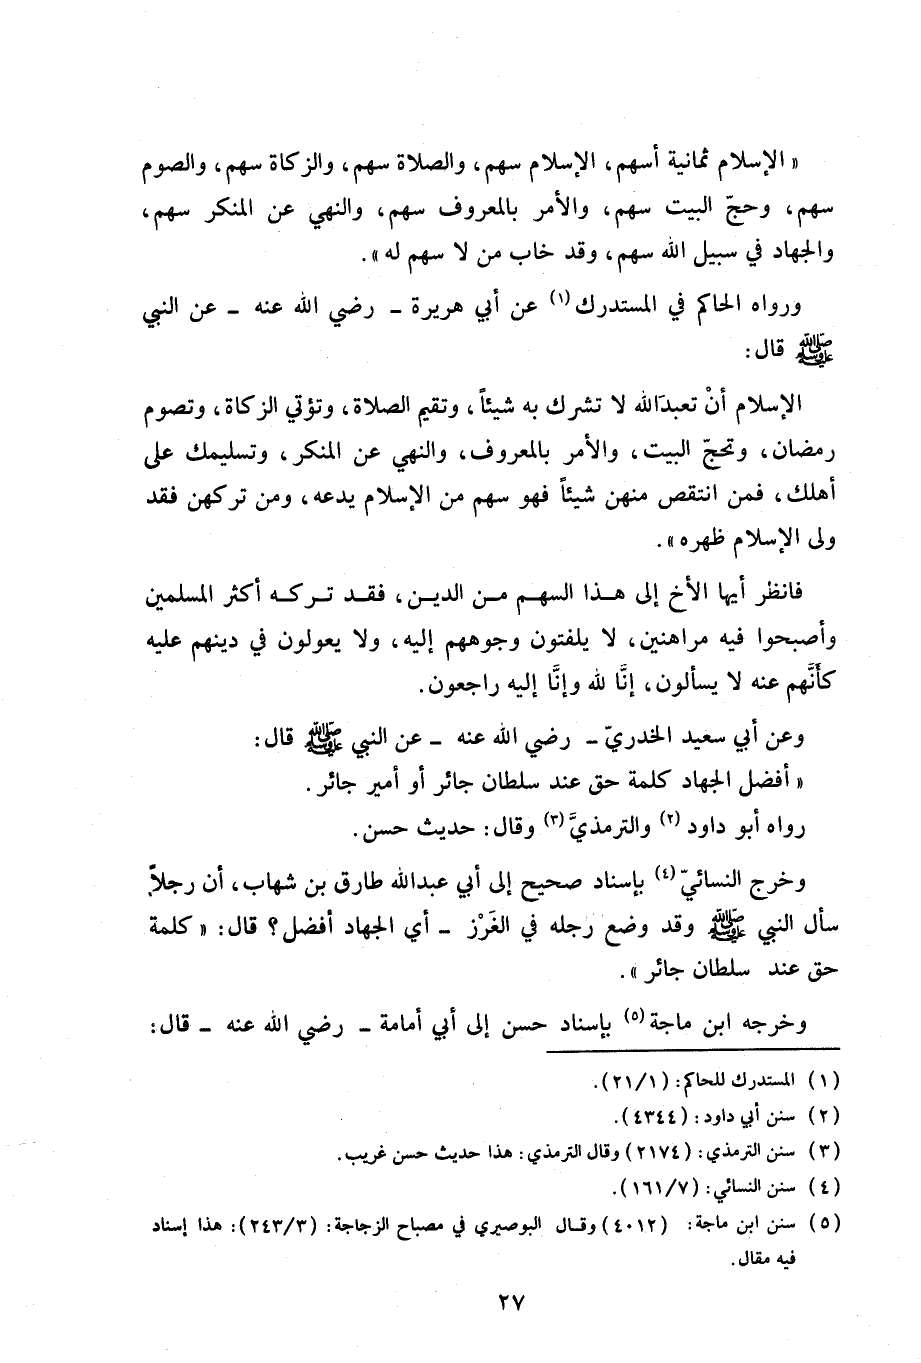 « الإسلام ثمانية أسهم، الإسلام سهم، والصلاة سهم، والزكاة سهم، والصوم
سهم، وحجّ البيت سهم، والأمر بالمعروف سهم، والنهي عن المنكر سهم،
والجهاد في سبيل الله سهم، وقد خاب من لا سهم له ».
ورواه الحاكم في المستدرك (١) عن أبي هريرة ـ رضي الله عنه ـ عن النبي
ﷺ قال:
الإسلام أنْ تعبدَالله لا تشرك به شيئاً، وتقيم الصلاة، وتؤتي الزكاة، وتصوم
رمضان، وتحجّ البيت، والأمر بالمعروف، والنهي عن المنكر، وتسليمك على
أهلك، فمن انتقص منهن شيئاً فهو سهم من الإسلام يدعه، ومن تركهن فقد
ولى الإسلام ظهره ».
فانظر أيها الأخ إلى هـذا السهـم مـن الديـن، فقـد تـركـه أكثر المسلمين
وأصبحوا فيه مراهنين، لا يلفتون وجوههم إليه، ولا يعولون في دينهم عليه
كأَنَّهم عنه لا يسألون، إنَّا لله وإنَّا إليه راجعون.
وعن أبي سعيد الخدريّ ـ رضي الله عنه ـ عن النبي ﷺ قال:
« أفضل الجهاد كلمة حق عند سلطان جائر أو أمير جائر.
رواه أبو داود (٢) والترمذيَّ (٣) وقال: حديث حسن.
وخرج النسائيّ (٤) بإسناد صحيح إلى أبي عبدالله طارق بن شهاب، أن رجلاً
سأل النبي ﷺ وقد وضع رجله في الغَرْز ـ أي الجهاد أفضل؟ قال: « كلمة
حق عند سلطان جائر ».
وخرجه ابن ماجة (٥) بإسناد حسن إلى أبي أمامة ـ رضي الله عنه ـ قال:
(١) المستدرك للحاكم: (٢١/١).
(٢) سنن أبي داود: (٤٣٤٤).
(٣) سنن الترمذي: (٢١٧٤) وقال الترمذي: هذا حديث حسن غريب.
(٤) سنن النسائي: (١٦١/٧).
(٥) سنن ابن ماجة: (٤٠١٢) وقـال البوصيري في مصباح الزجاجة: (٢٤٣/٣): هذا إسناد
فيه مقال.
٢٧